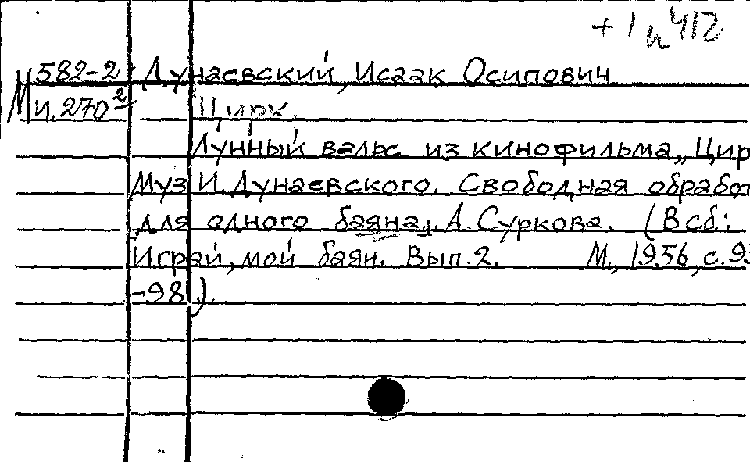 + 1 и 412
М 582-2 Дунаевский, Исаак Осипович
И.270² Цирк.
Лунный вальс из кинофильма „Цир
Муз И. Дунаевского. Свободная обработ
для одного баяна А. Суркова. (В сб.:
Играй, мой баян. Вып. 2. М., 1956, с. 93
-98).